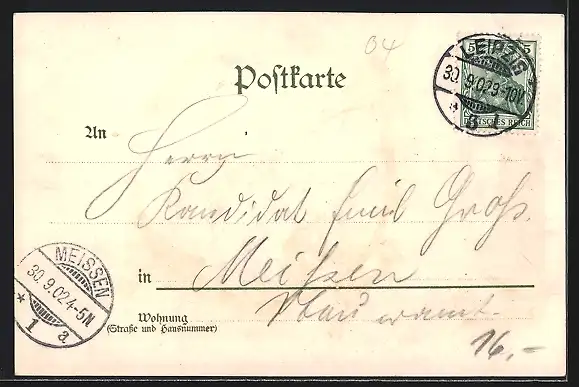 04
5 5
LEIPZIG
30.9.02.9-10V.
* 3 l
DEUTSCHES REICH
Postkarte
An
Herrn
Kandidat Emil Groß.
in Meißen
MEISSEN
30.9.02.4-5N
* 1 a
Wohnung
(Straße und Hausnummer)
16,-